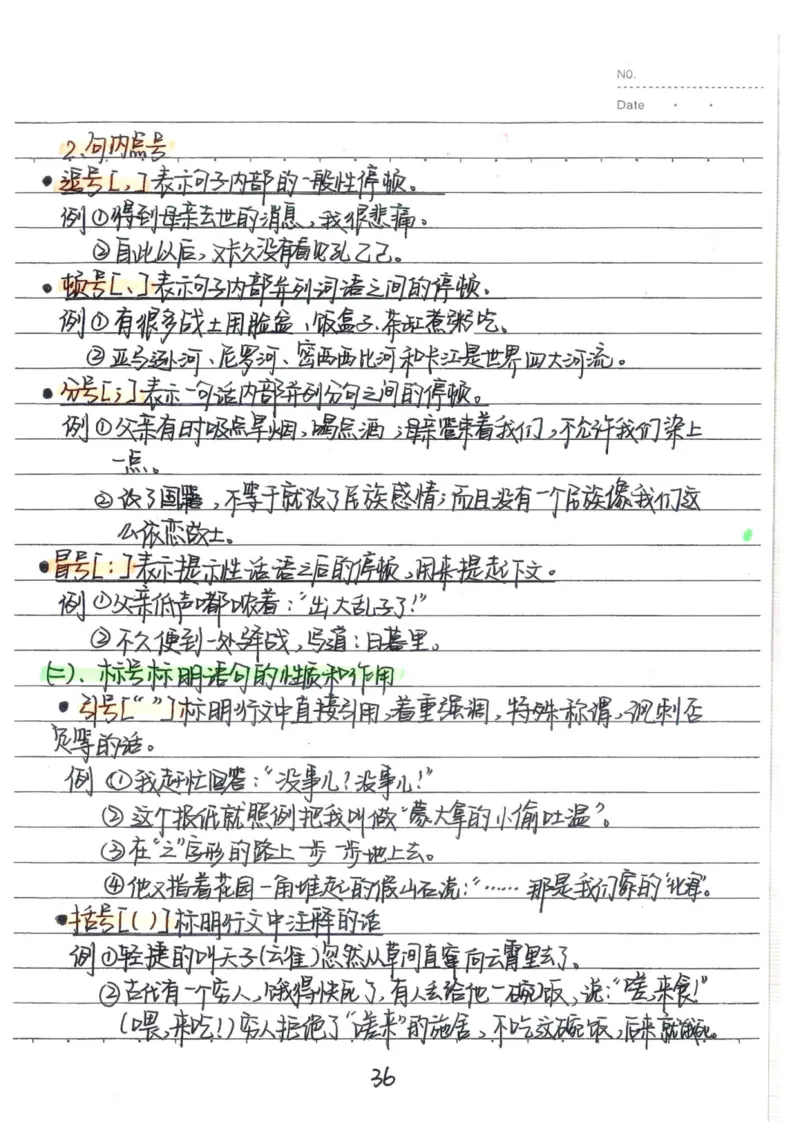 NO.
Date
2、句内点号
• 逗号[，]表示句子内部的一般性停顿。
例①得到母亲去世的消息，我很悲痛。
②自此以后，又长久没有看见孔乙己。
• 顿号[、]表示句子内部并列词语之间的停顿。
例①有很多战士用脸盆、饭盒子、茶缸煮粥吃。
②亚马逊河、尼罗河、密西西比河和长江是世界四大河流。
• 分号[；]表示一句话内部并列分句之间的停顿。
例①父亲有时吸点旱烟，喝点酒；母亲管束着我们，不允许我们染上
一点。
②改了国籍，不等于就改了民族感情；而且没有一个民族像我们这
么依恋故土。
• 冒号[：]表示提示性话语之后的停顿，用来提起下文。
例①父亲低声嘟哝着：“出大乱子了！”
②不久便到一处驿站，写道：日暮里。
(二)、标号标明语句的性质和作用
• 引号[“ ”]标明行文中直接引用，着重强调，特殊称谓，讽刺否
定等的话。
例 ①我赶忙回答：“没事儿？没事儿！”
②这个报纸就照例把我叫做“蒙大拿的小偷吐温”。
③在“之”字形的路上一步一步地上去。
④他又指着花园一角堆起的假山石说：“…… 那是我们家的‘北海’。
• 括号[( )]标明行文中注释的话
例①轻捷的叫天子(云雀)忽然从草间直窜向云霄里去了。
②古代有一个穷人，饿得快死了，有人丢给他一碗饭，说：“嗟，来食！”
(喂，来吃！)穷人拒绝了“嗟来”的施舍，不吃这碗饭，后来就饿死。
36